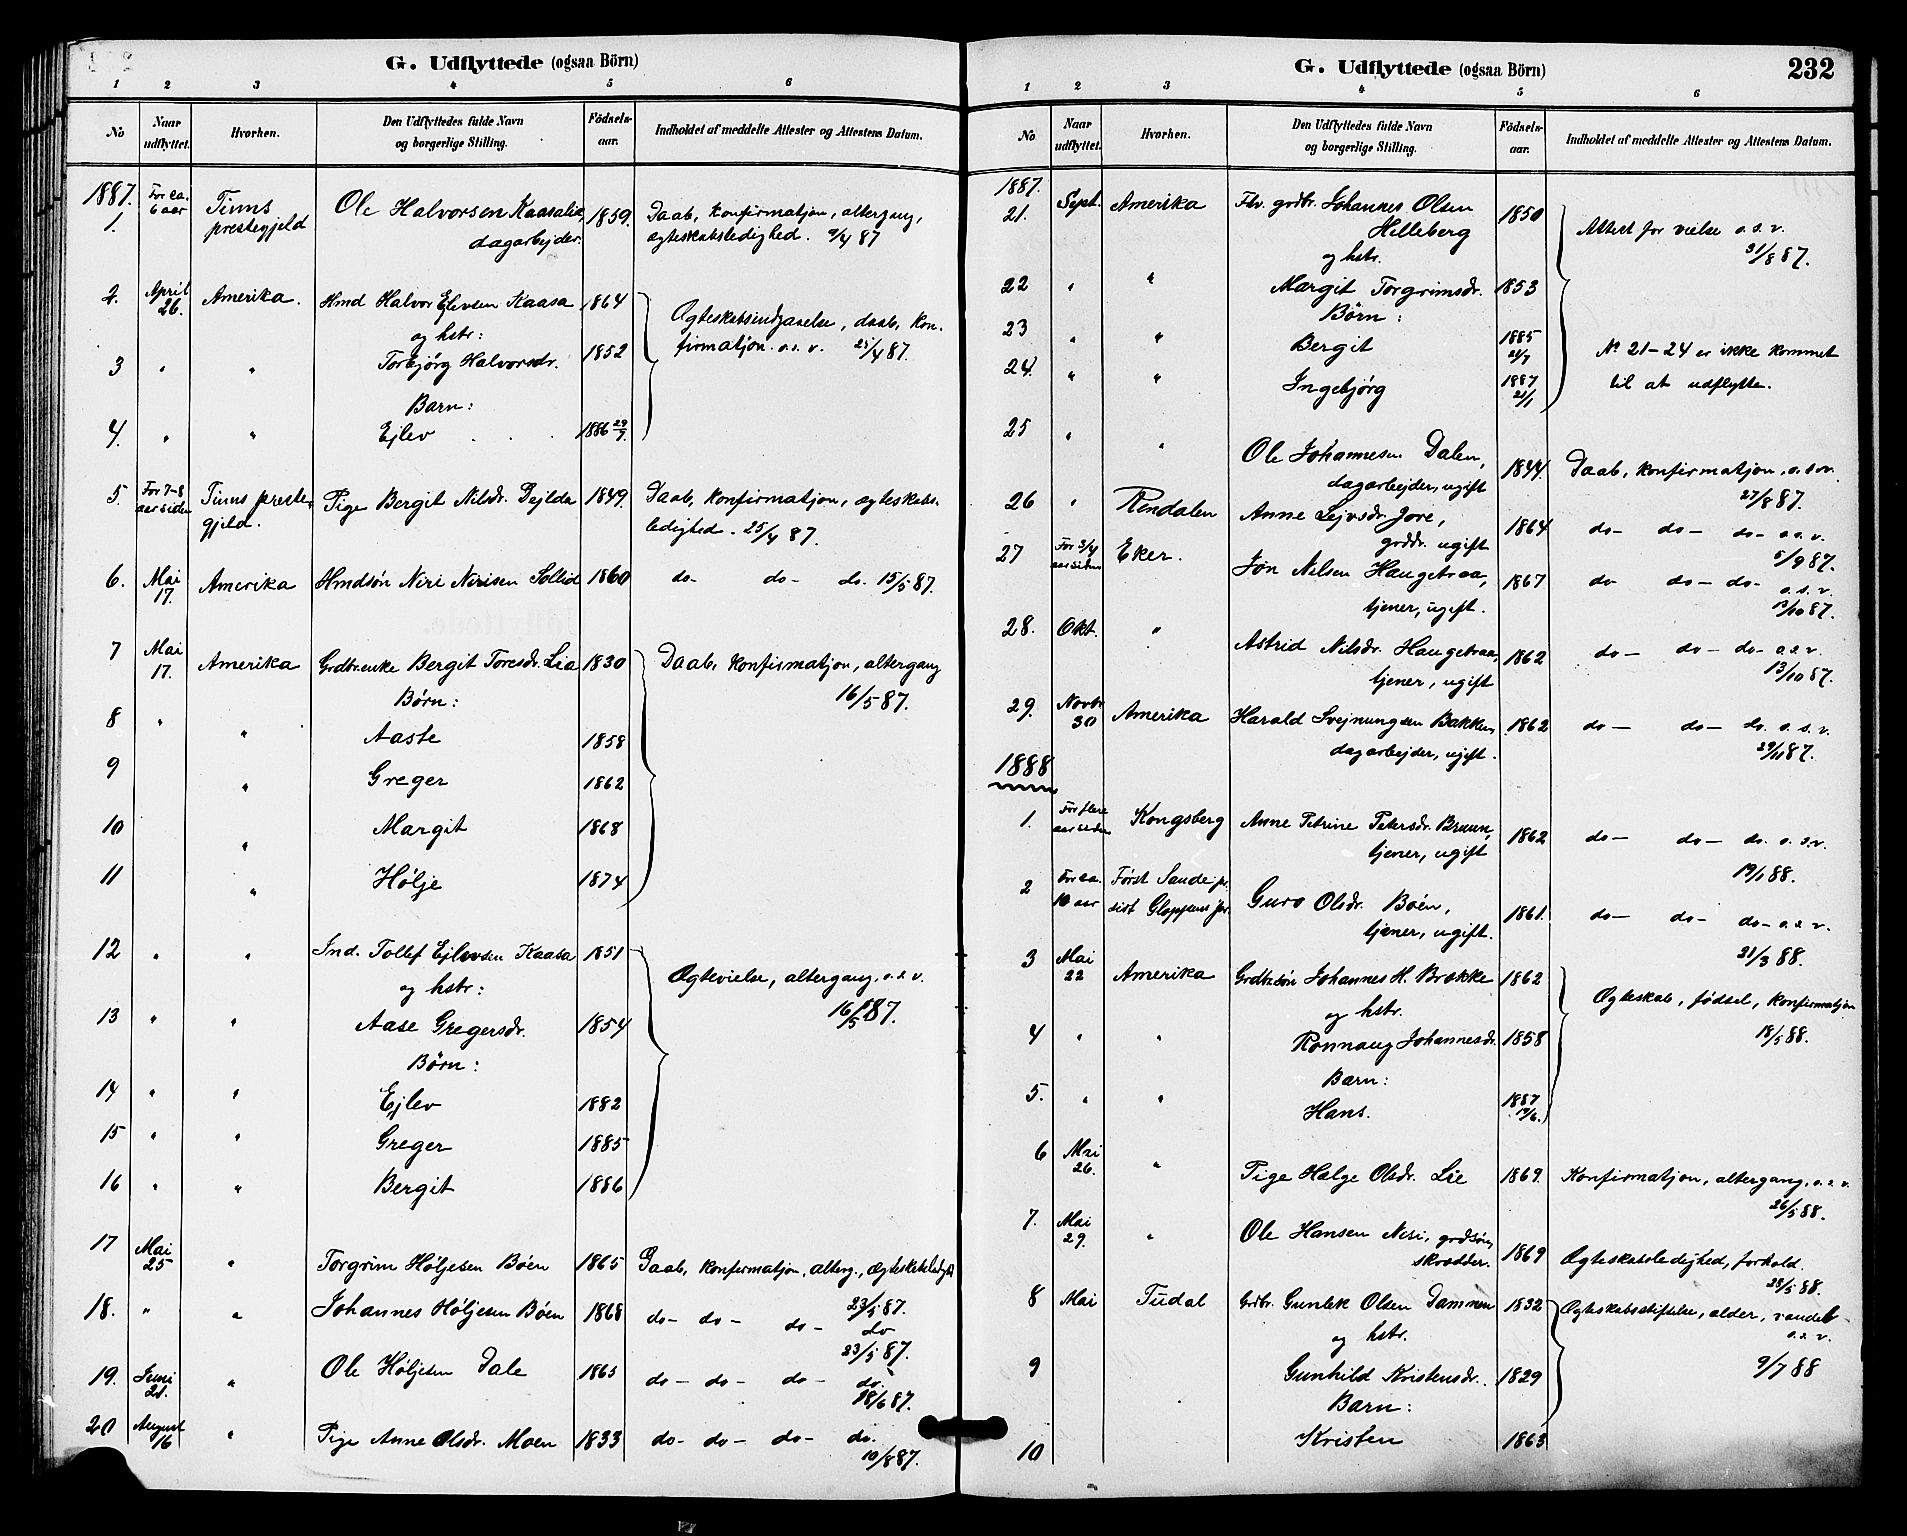 G. Udflyttede (ogsaa Börn)
1 2 3 4 5 6
No Naar udflyttet. Hvorhen. Den Udflyttedes fulde Navn og borgerlige Stilling. Födsels-aar. Indholdet af meddelte Attester og Attestens Datum.
1887.
1. For ca. 6 aar Tinns prestegjeld Ole Halvorsen Kaasalia dagarbejder. 1859. Daab, konfirmatjon, altergang, ægteskabsledighed. 9/4 87
2. April 26. Amerika. Hmd Halvor Ejlevsen Kaasa 1864 Ægteskabsindgaaelse, daab, kon-
og hstr: firmatjon. o. s. v. 25/4 87.
3 " " Torbjørg Halvorsdr. 1852
Barn:
4. " " Ejlev 1886 29/7.
5 For 7-8 aar siden Tinns preste-gjeld. Pige Bergit Nilsdr. Dejlda 1849. Daab, konfirmatjon, ægteskabs-ledighed. 25/4 87.
6. Mai 17. Amerika Hmdsøn Niri Nirisen Sollid 1860 do- do- do. 15/5 87.
7 Mai 17. Amerika Grdbr.enke Bergit Toresdr. Lia 1830 Daab, konfirmatjon, altergang
Børn: 16/5 87.
8 " " Aaste 1858
9 " Greger 1862
10 " Margit 1868
11 " Hølje 1874
12 " " Ind. Tollef Ejlevsen Kaasa 1851 Ægtevielse, altergang, o. s. v.
og hstr: 16/5 87.
13 " " Aase Gregersdr. 1854
Børn:
14 " " Ejlev 1882
15 " " Greger 1885
16 " " Bergit 1886
17 Mai 25 " Torgrim Høljesen Bøen 1865 Daab, konfirmatjon, alterg., ægteskabsledigh
23/5 87.
18. " " Johannes Høljesen Bøen 1868 do- do- do- do
23/5 87.
19. Juni 21. " Ole Høljesen Dale 1865 do- do- do- do.
18/6 87.
20 August 16 " Pige Anne Olsdr. Moen 1833 do- do- do- do.
10/8 87.
G. Udflyttede (ogsaa Börn) 232
1 2 3 4 5 6
No Naar udflyttet. Hvorhen. Den Udflyttedes fulde Navn og borgerlige Stilling. Födsels-aar. Indholdet af meddelte Attester og Attestens Datum.
1887.
21. Sept. Amerika Fhv. grdbr. Johannes Olsen Helleberg 1850 Attest for vielse o. s. v.
og hstr. 31/8 87.
22 " " Margit Torgrimsdr. 1853
Børn:
23 " " Bergit 1885 Nº 21-24 er ikke kommet
24. " " Ingebjørg 1887 21/1 til at udflytte.
25 " " Ole Johannesen Dalen, dagarbejder, ugift 1844. Daab, konfirmatjon, o.s.v.
27/8 87.
26 " Anne Lejvsdr. Jore, grddr. ugift 1864 do- do- do- o. s. v.
5/9 87.
27 For 3/4 aar siden Eker. Jon Nilsen Haugetraa, tjener, ugift. 1867 do do- do- o. s. v.
13/10 87.
28. Okt. " Astrid Nilsdr. Haugetraa, tjener, ugift 1862 do- do- do- o. s. v.
13/10 87.
29. Novbr 30 Amerika Harald Svejnungsen Bakken, dagarbejder, ugift. 1862 do- do- do. o. s. v.
29/11 87.
1888
1. For flere aar siden Kongsberg Anne Petrine Petersdr. Bruun, tjener, ugift 1862 do- do- do. o. s.v.
19/1 88.
2 For ca. 10 aar Først Sande pr. sist Gloppens pr. Guro Olsdr. Bøen, tjener, ugift. 1861. do- do- do- o. s. v.
21/3 88.
3 Mai 22 Amerika Grdbr.søn Johannes H. Brække 1862 Ægteskab, fødsel, konfirmatjon
og hstr. 18/5 88.
4 " " Ronnaug Johannesdr. 1858
Barn:
5. " " Hans. 1887
6 Mai 26. " Pige Helge Olsdr. Lie 1869. Konfirmatjon, altergang, o. s. v.
26/5 88.
7. Mai 29. " Ole Hansen Nisi, grdsøn, skrædder. 1869 Ægteskabsledighed, forhold.
28/5 88.
8 Mai Tudal Grdbr. Gunlek Olsen Dammen 1832 Ægteskabsstiftelse, alder, vandel
og hstr. o. s. v.
9 Gunhild Kristensdr. 1829 9/7 88
Barn:
10 Kristen 1863